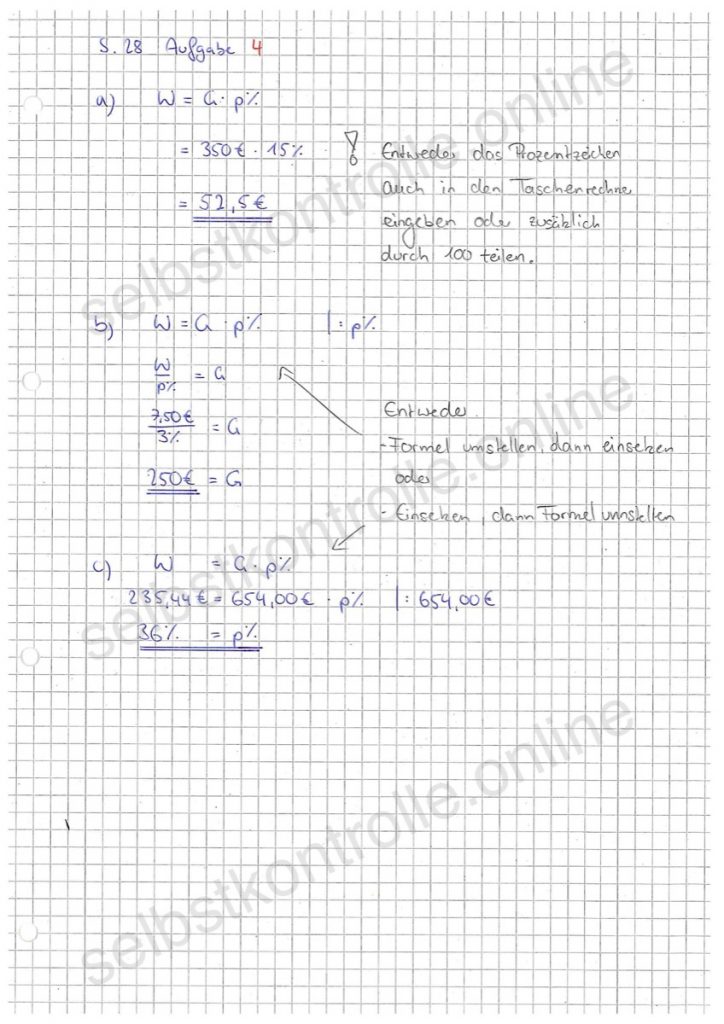 S. 28 Aufgabe 4
a) W = G · p%
= 350€ · 15%
= 52,5€
! Entweder das Prozentzeichen
auch in den Taschenrechne
eingeben oder zusätzlich
durch 100 teilen.
b) W = G · p% |: p%
W/p% = G
7,50€/3% = G
250€ = G
Entweder
- Formel umstellen, dann einsetzen
oder
- Einsetzen, dann Formel umstellen
c) W = G · p%
235,44€ = 654,00€ · p% |: 654,00€
36% = p%
selbstkontrolle.online
selbstkontrolle.online
selbstkontrolle.online